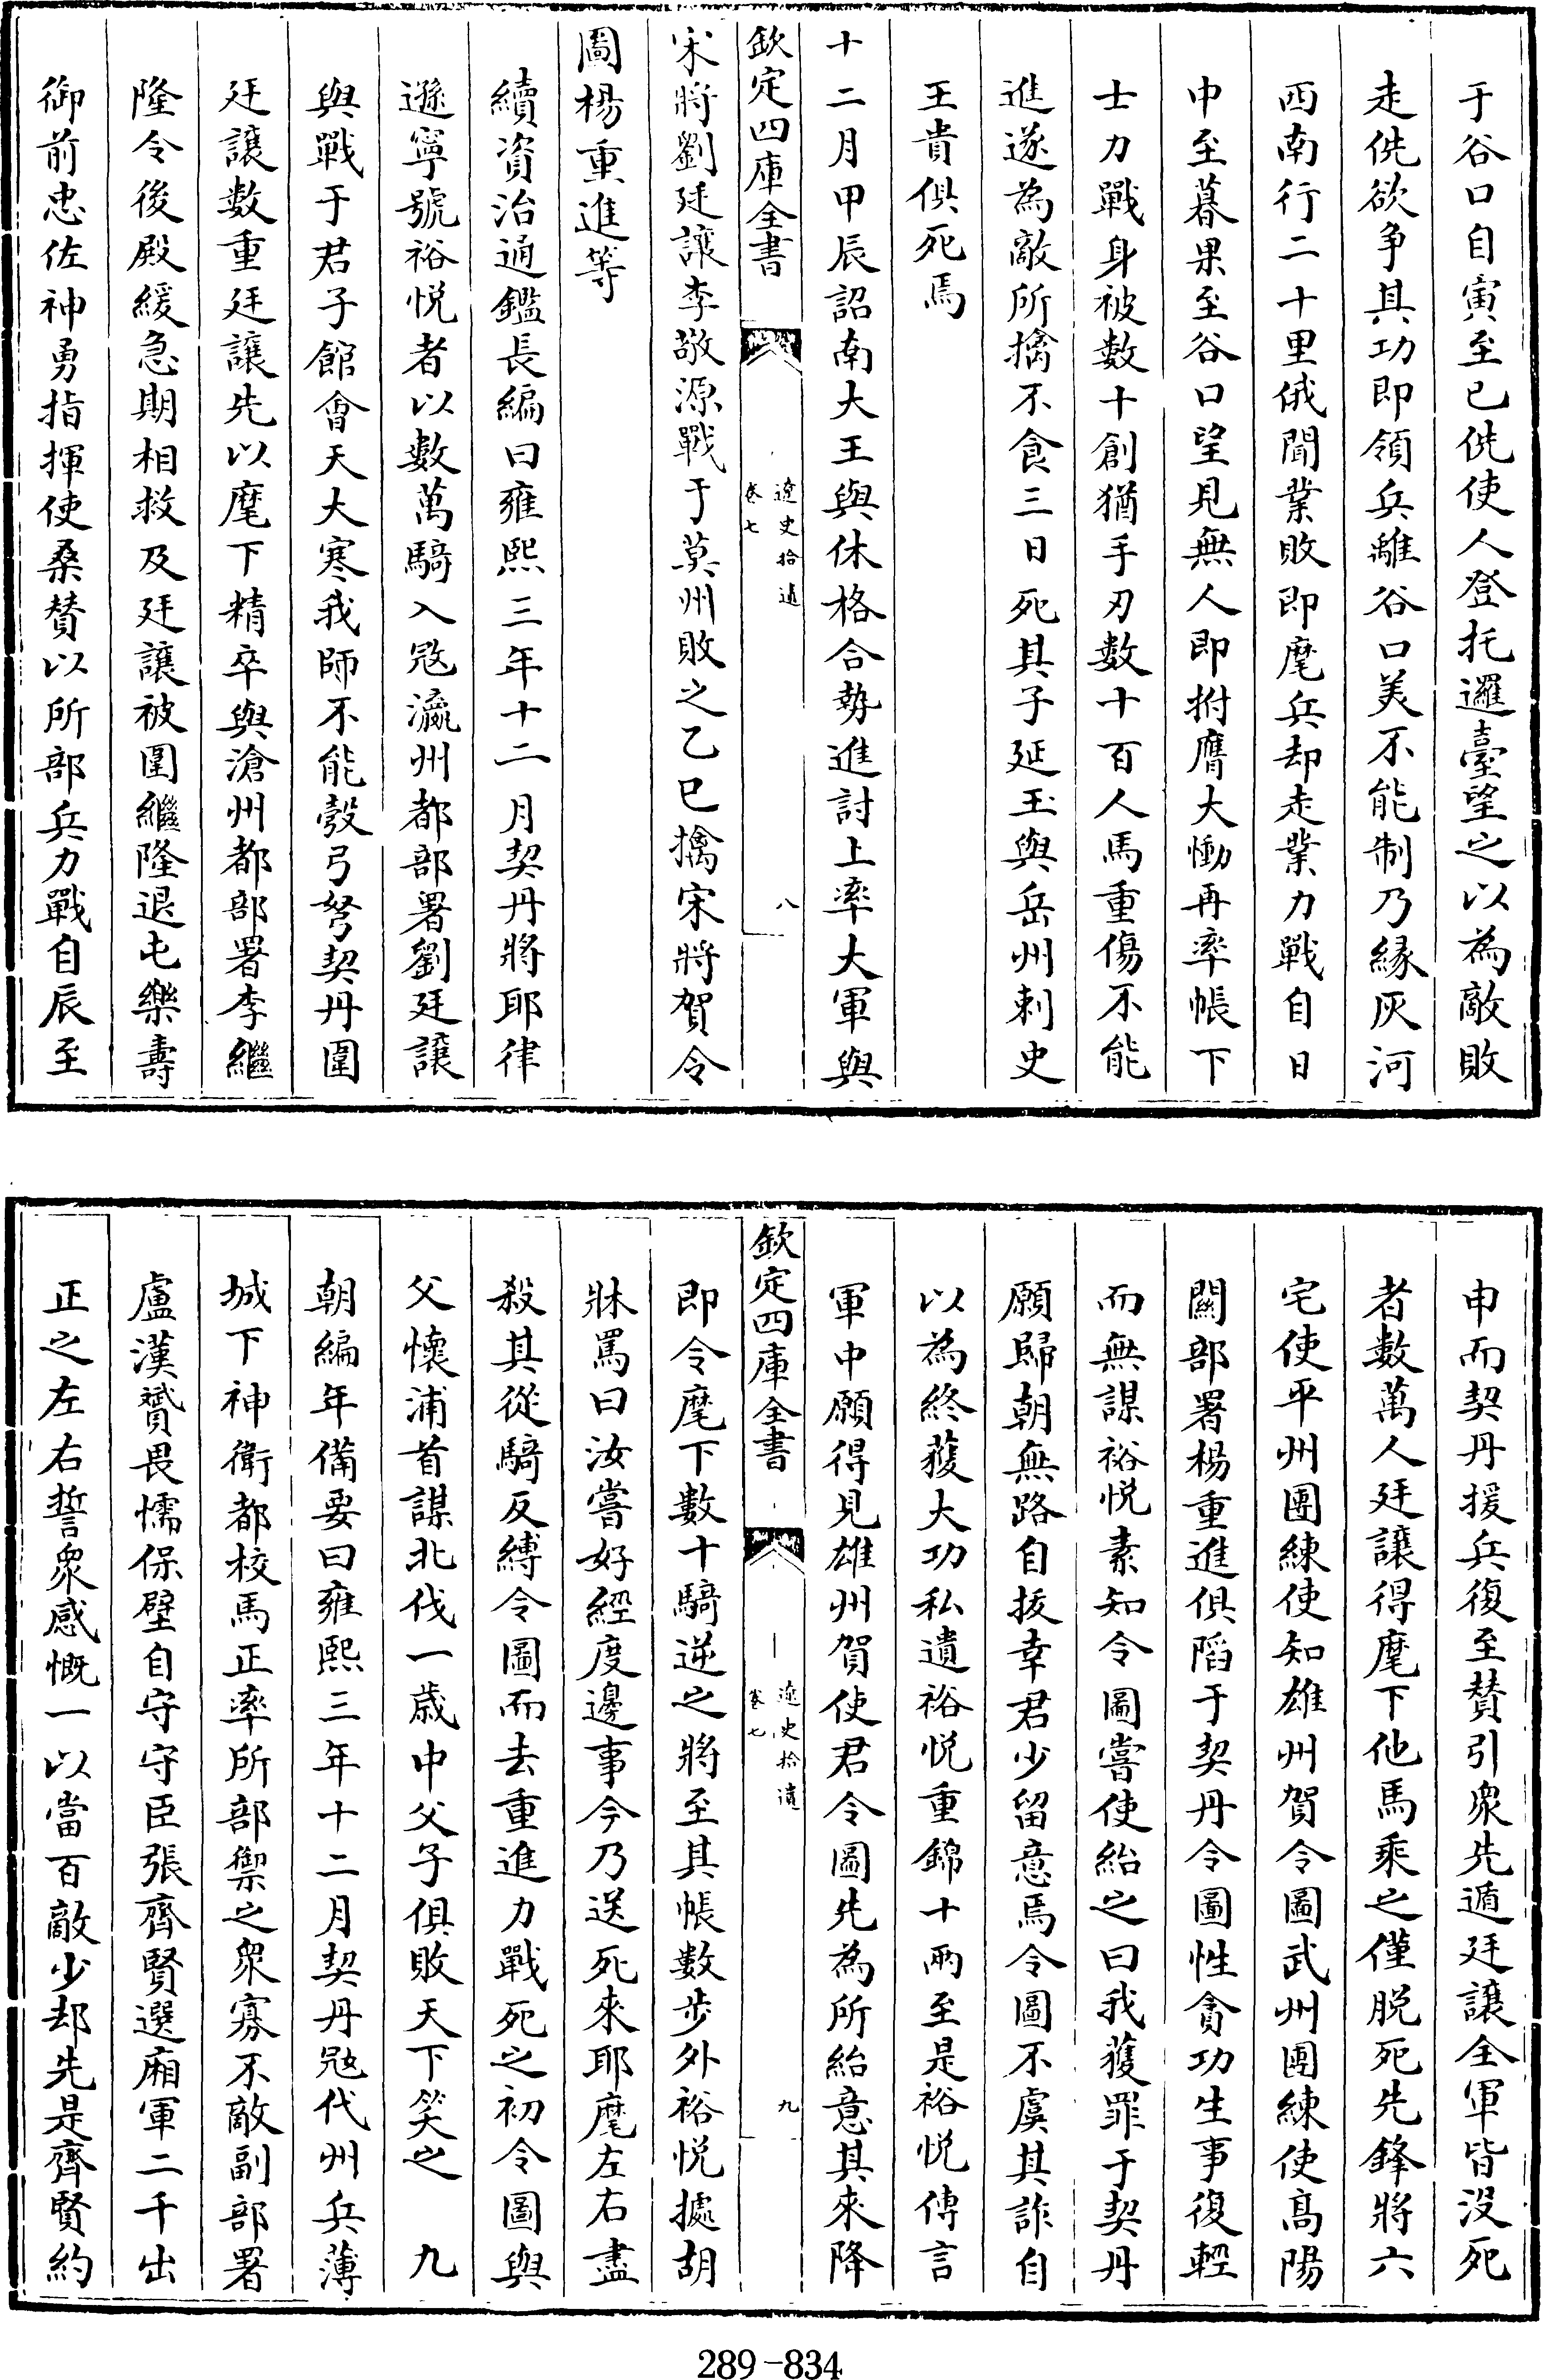 于谷口自寅至已侁使人登托邏臺望之以為敵敗
走侁欲争其功即領兵離谷口美不能制乃縁灰河
西南行二十里俄聞業敗即麾兵却走業力戰自日
中至暮果至谷口望見無人即拊膺大慟再率帳下
士力戰身被數十創猶手刃數十百人馬重傷不能
進遂為敵所擒不食三日死其子延玉與岳州刺史
王貴俱死焉
十二月甲辰詔南大王與休格合勢進討上率大軍與
欽定四庫全書
遼史拾遺
卷七
八
宋將劉廷讓李敬源戰于莫州敗之乙巳擒宋將賀令
圖楊重進等
續資治通鑑長編曰雍熙三年十二月契丹將耶律
遜寧號裕悦者以數萬騎入冦瀛州都部署劉廷讓
與戰于君子館會天大寒我師不能彀弓弩契丹圍
廷讓數重廷讓先以麾下精卒與滄州都部署李繼
隆令後殿緩急期相救及廷讓被圍繼隆退屯樂壽
御前忠佐神勇指揮使桑賛以所部兵力戰自辰至
申而契丹援兵復至賛引衆先遁廷讓全軍皆没死
者數萬人廷讓得麾下他馬乘之僅脱死先鋒將六
宅使平州團練使知雄州賀令圖武州團練使髙陽
關部署楊重進俱䧟于契丹令圖性貪功生事復輕
而無謀裕悦素知令圖嘗使紿之曰我獲罪于契丹
願歸朝無路自拔幸君少留意焉令圖不虞其詐自
以為終獲大功私遺裕悦重錦十兩至是裕悦傳言
軍中願得見雄州賀使君令圖先為所紿意其來降
欽定四庫全書
遼史拾遺
卷七
九
即令麾下數十騎逆之將至其帳數步外裕悦據胡
牀罵曰汝嘗好經度邊事今乃送死來耶麾左右盡
殺其從騎反縛令圖而去重進力戰死之初令圖與
父懷浦首謀北伐一歳中父子俱敗天下笑之　九
朝編年備要曰雍熙三年十二月契丹冦代州兵薄
城下神衛都校馬正率所部禦之衆寡不敵副部署
盧漢贇畏懦保壁自守守臣張齊賢選廂軍二千出
正之左右誓衆感慨一以當百敵少却先是齊賢約
289-834